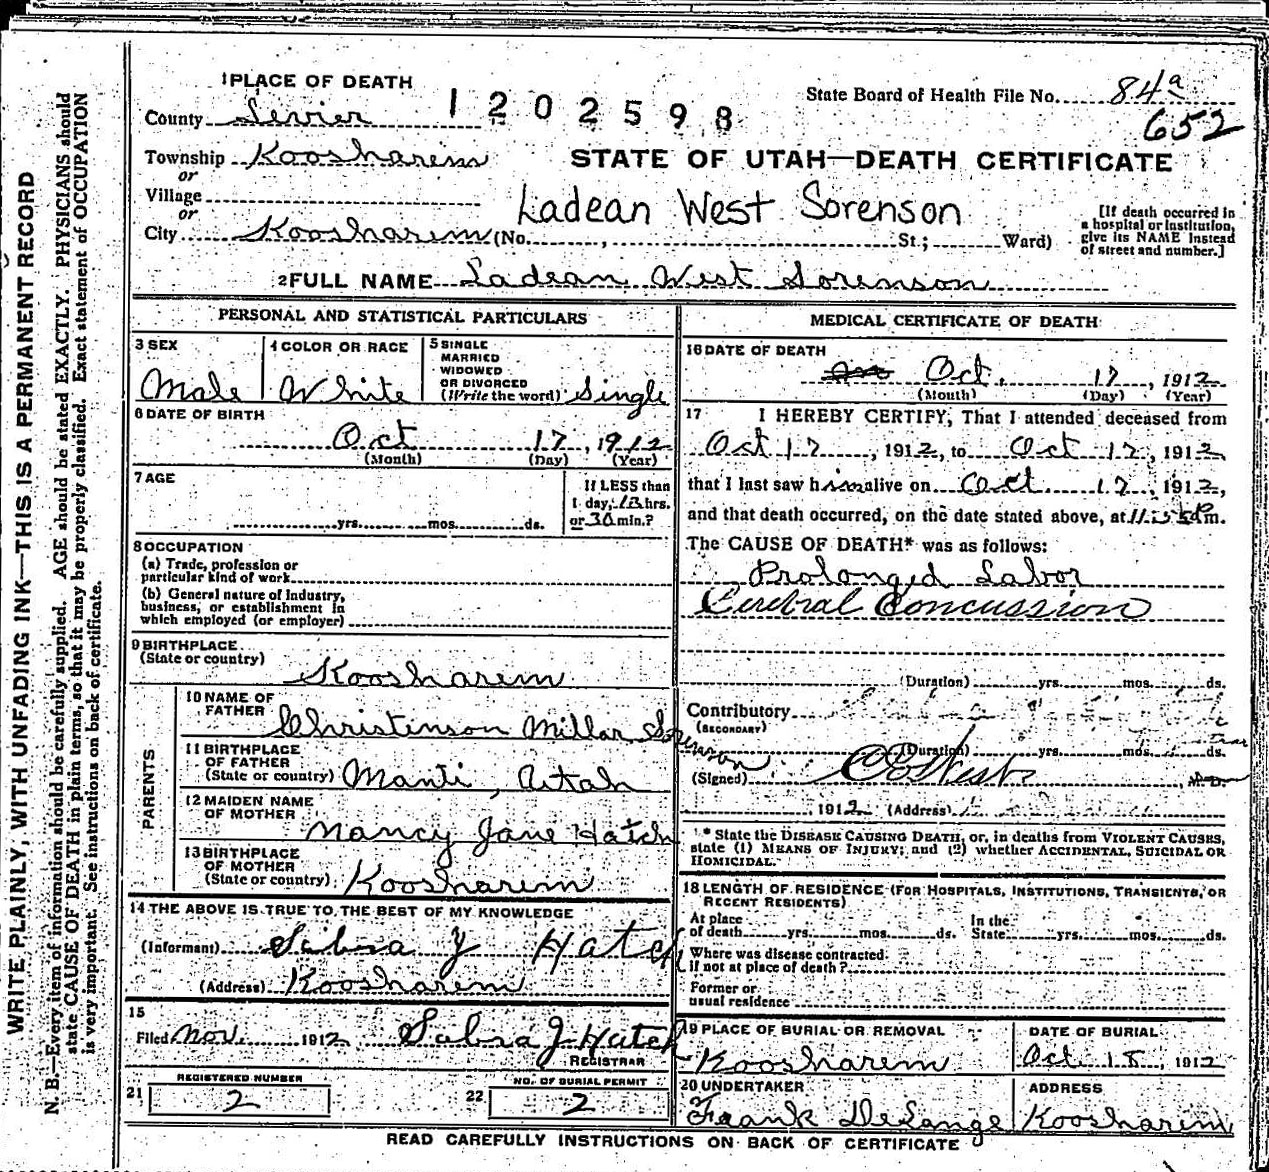 1 PLACE OF DEATH
1202598
State Board of Health File No. 84a
652
County Sevier
Township Koosharem
or
Village
or
City Koosharem (No. , St.; Ward)
STATE OF UTAH—DEATH CERTIFICATE
Ladean West Sorenson
[If death occurred in
a hospital or institution,
give its NAME instead
of street and number.]
2 FULL NAME Ladean West Sorenson
PERSONAL AND STATISTICAL PARTICULARS
3 SEX
Male
4 COLOR OR RACE
White
5 SINGLE
MARRIED
WIDOWED
OR DIVORCED
(Write the word) Single
6 DATE OF BIRTH
Oct 17, 1912
(Month) (Day) (Year)
7 AGE
yrs. mos. ds.
If LESS than
1 day, hrs.
or 30 min.?
8 OCCUPATION
(a) Trade, profession or
particular kind of work
(b) General nature of industry,
business, or establishment in
which employed (or employer)
9 BIRTHPLACE
(State or country)
Koosharem
PARENTS
10 NAME OF
FATHER
Christinson Millar Sorenson
11 BIRTHPLACE
OF FATHER
(State or country) Manti, Utah
12 MAIDEN NAME
OF MOTHER
Nancy Jane Hatch
13 BIRTHPLACE
OF MOTHER
(State or country) Koosharem
14 THE ABOVE IS TRUE TO THE BEST OF MY KNOWLEDGE
(Informant) Sabra J Hatch
(Address) Koosharem
15
Filed Nov. 1912 Sabra J Hatch
REGISTRAR
21 REGISTERED NUMBER
2
22 NO. OF BURIAL PERMIT
2
MEDICAL CERTIFICATE OF DEATH
16 DATE OF DEATH
Oct. 17, 1912
(Month) (Day) (Year)
17 I HEREBY CERTIFY, That I attended deceased from
Oct 17, 1912, to Oct 17, 1912
that I last saw him alive on Oct 17, 1912,
and that death occurred, on the date stated above, at m.
The CAUSE OF DEATH* was as follows:
Prolonged Labor
Cerebral Concussion
(Duration) yrs. mos. ds.
Contributory
(SECONDARY)
(Duration) yrs. mos. ds.
(Signed) West M.D.
1912 (Address)
* State the DISEASE CAUSING DEATH, or, in deaths from VIOLENT CAUSES,
state (1) MEANS OF INJURY; and (2) whether ACCIDENTAL, SUICIDAL OR
HOMICIDAL.
18 LENGTH OF RESIDENCE (FOR HOSPITALS, INSTITUTIONS, TRANSIENTS, OR
RECENT RESIDENTS)
At place
of death yrs. mos. ds.
In the
State yrs. mos. ds.
Where was disease contracted
if not at place of death?
Former or
usual residence
19 PLACE OF BURIAL OR REMOVAL
Koosharem
DATE OF BURIAL
Oct 18, 1912
20 UNDERTAKER
Frank DeLange
ADDRESS
Koosharem
READ CAREFULLY INSTRUCTIONS ON BACK OF CERTIFICATE
WRITE PLAINLY, WITH UNFADING INK—THIS IS A PERMANENT RECORD
N. B.—Every item of information should be carefully supplied. AGE should be stated EXACTLY. PHYSICIANS should
state CAUSE OF DEATH in plain terms, so that it may be properly classified. Exact statement of OCCUPATION
is very important. See instructions on back of certificate.